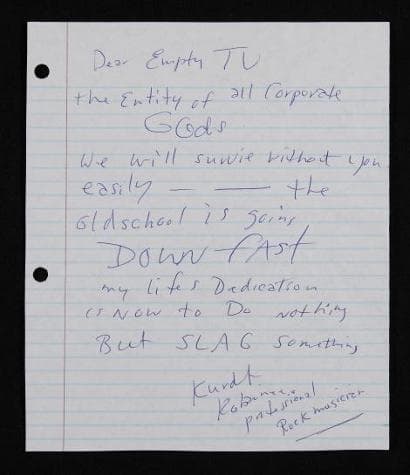 Dear Empty TV
the Entity of all Corporate
GOds
we will suvive without you
easily — — the
oldschool is going
DOWN FAST
my lifes Dedication
is NOW to Do nothing
But SLAG something
Kurdt
professional
Rock musician